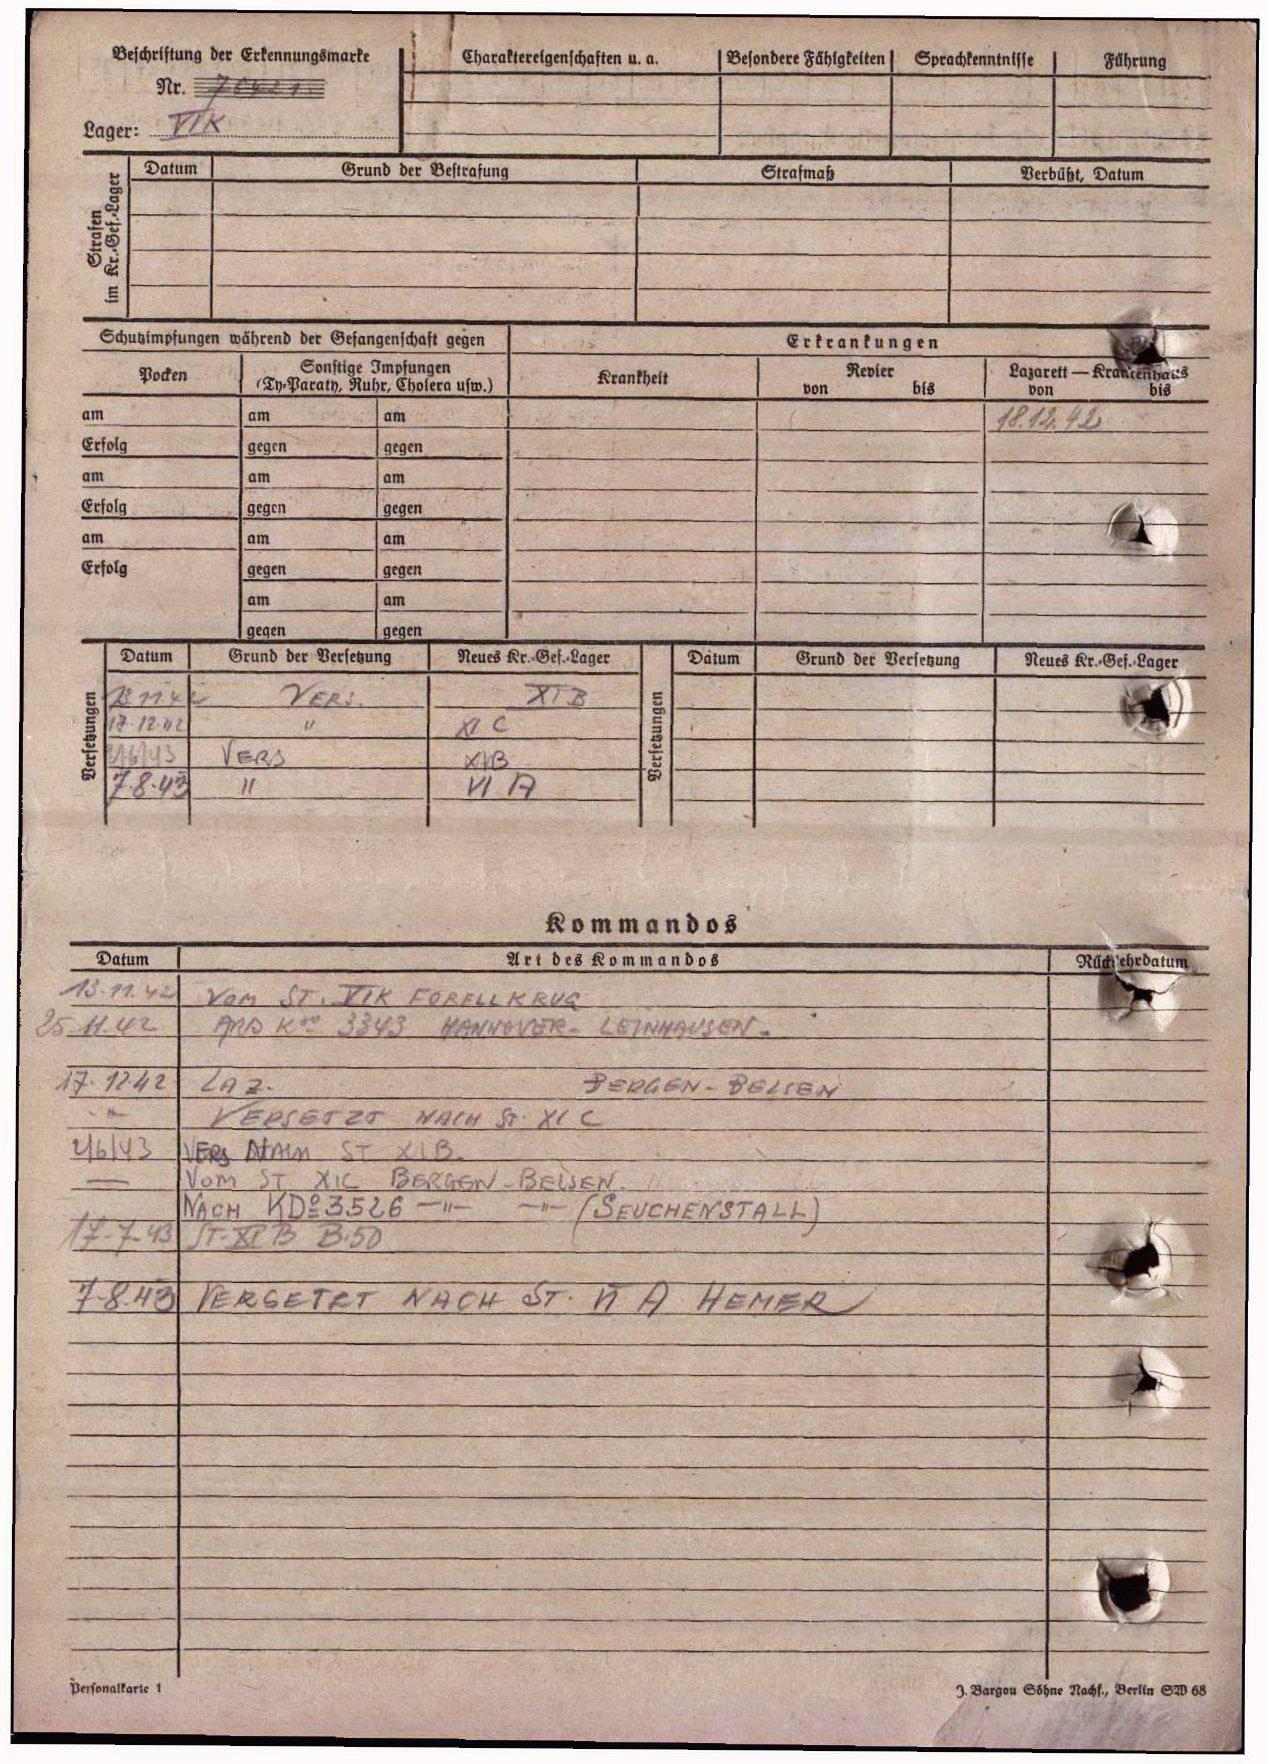 Beschriftung der Erkennungsmarke
Nr.
Lager: VI K
Charaktereigenschaften u. a. Besondere Fähigkeiten Sprachkenntnisse Führung
Strafen im Kr.-Gef.-Lager
Datum Grund der Bestrafung Strafmaß Verbüßt, Datum
Schutzimpfungen während der Gefangenschaft gegen Erkrankungen
Pocken Sonstige Impfungen Krankheit Revier Lazarett — Krankenhaus
(Ty-Paraty, Ruhr, Cholera usw.) von bis von bis
am am am 18.12.42
Erfolg gegen gegen
am am am
Erfolg gegen gegen
am am am
Erfolg gegen gegen
am am
gegen gegen
Versetzungen
Datum Grund der Versetzung Neues Kr.-Gef.-Lager
11 42 VERS. XI B
17.12.42 " XI C
2/6/43 VERS XI B
7.8.43 " VI A
Versetzungen
Datum Grund der Versetzung Neues Kr.-Gef.-Lager
Kommandos
Datum Art des Kommandos Rückkehrdatum
13.11.42 VOM ST. VI K FORELLKRUG
25.11.42 3343 HANNOVER-LEINHAUSEN-
17.12 42 LAZ. BERGEN-BELSEN
-"- VERSETZT NACH ST. XI C
2/6/43 VERS ST XI B.
— VOM ST XIC BERGEN-BELSEN.
NACH KDo 3526 -"- -"- (SEUCHENSTALL)
17-7-43 ST-XI B B.50
7.8.43 VERSETZT NACH ST. VI A HEMER
Personalkarte 1
J. Bargou Söhne Nachf., Berlin SW 68